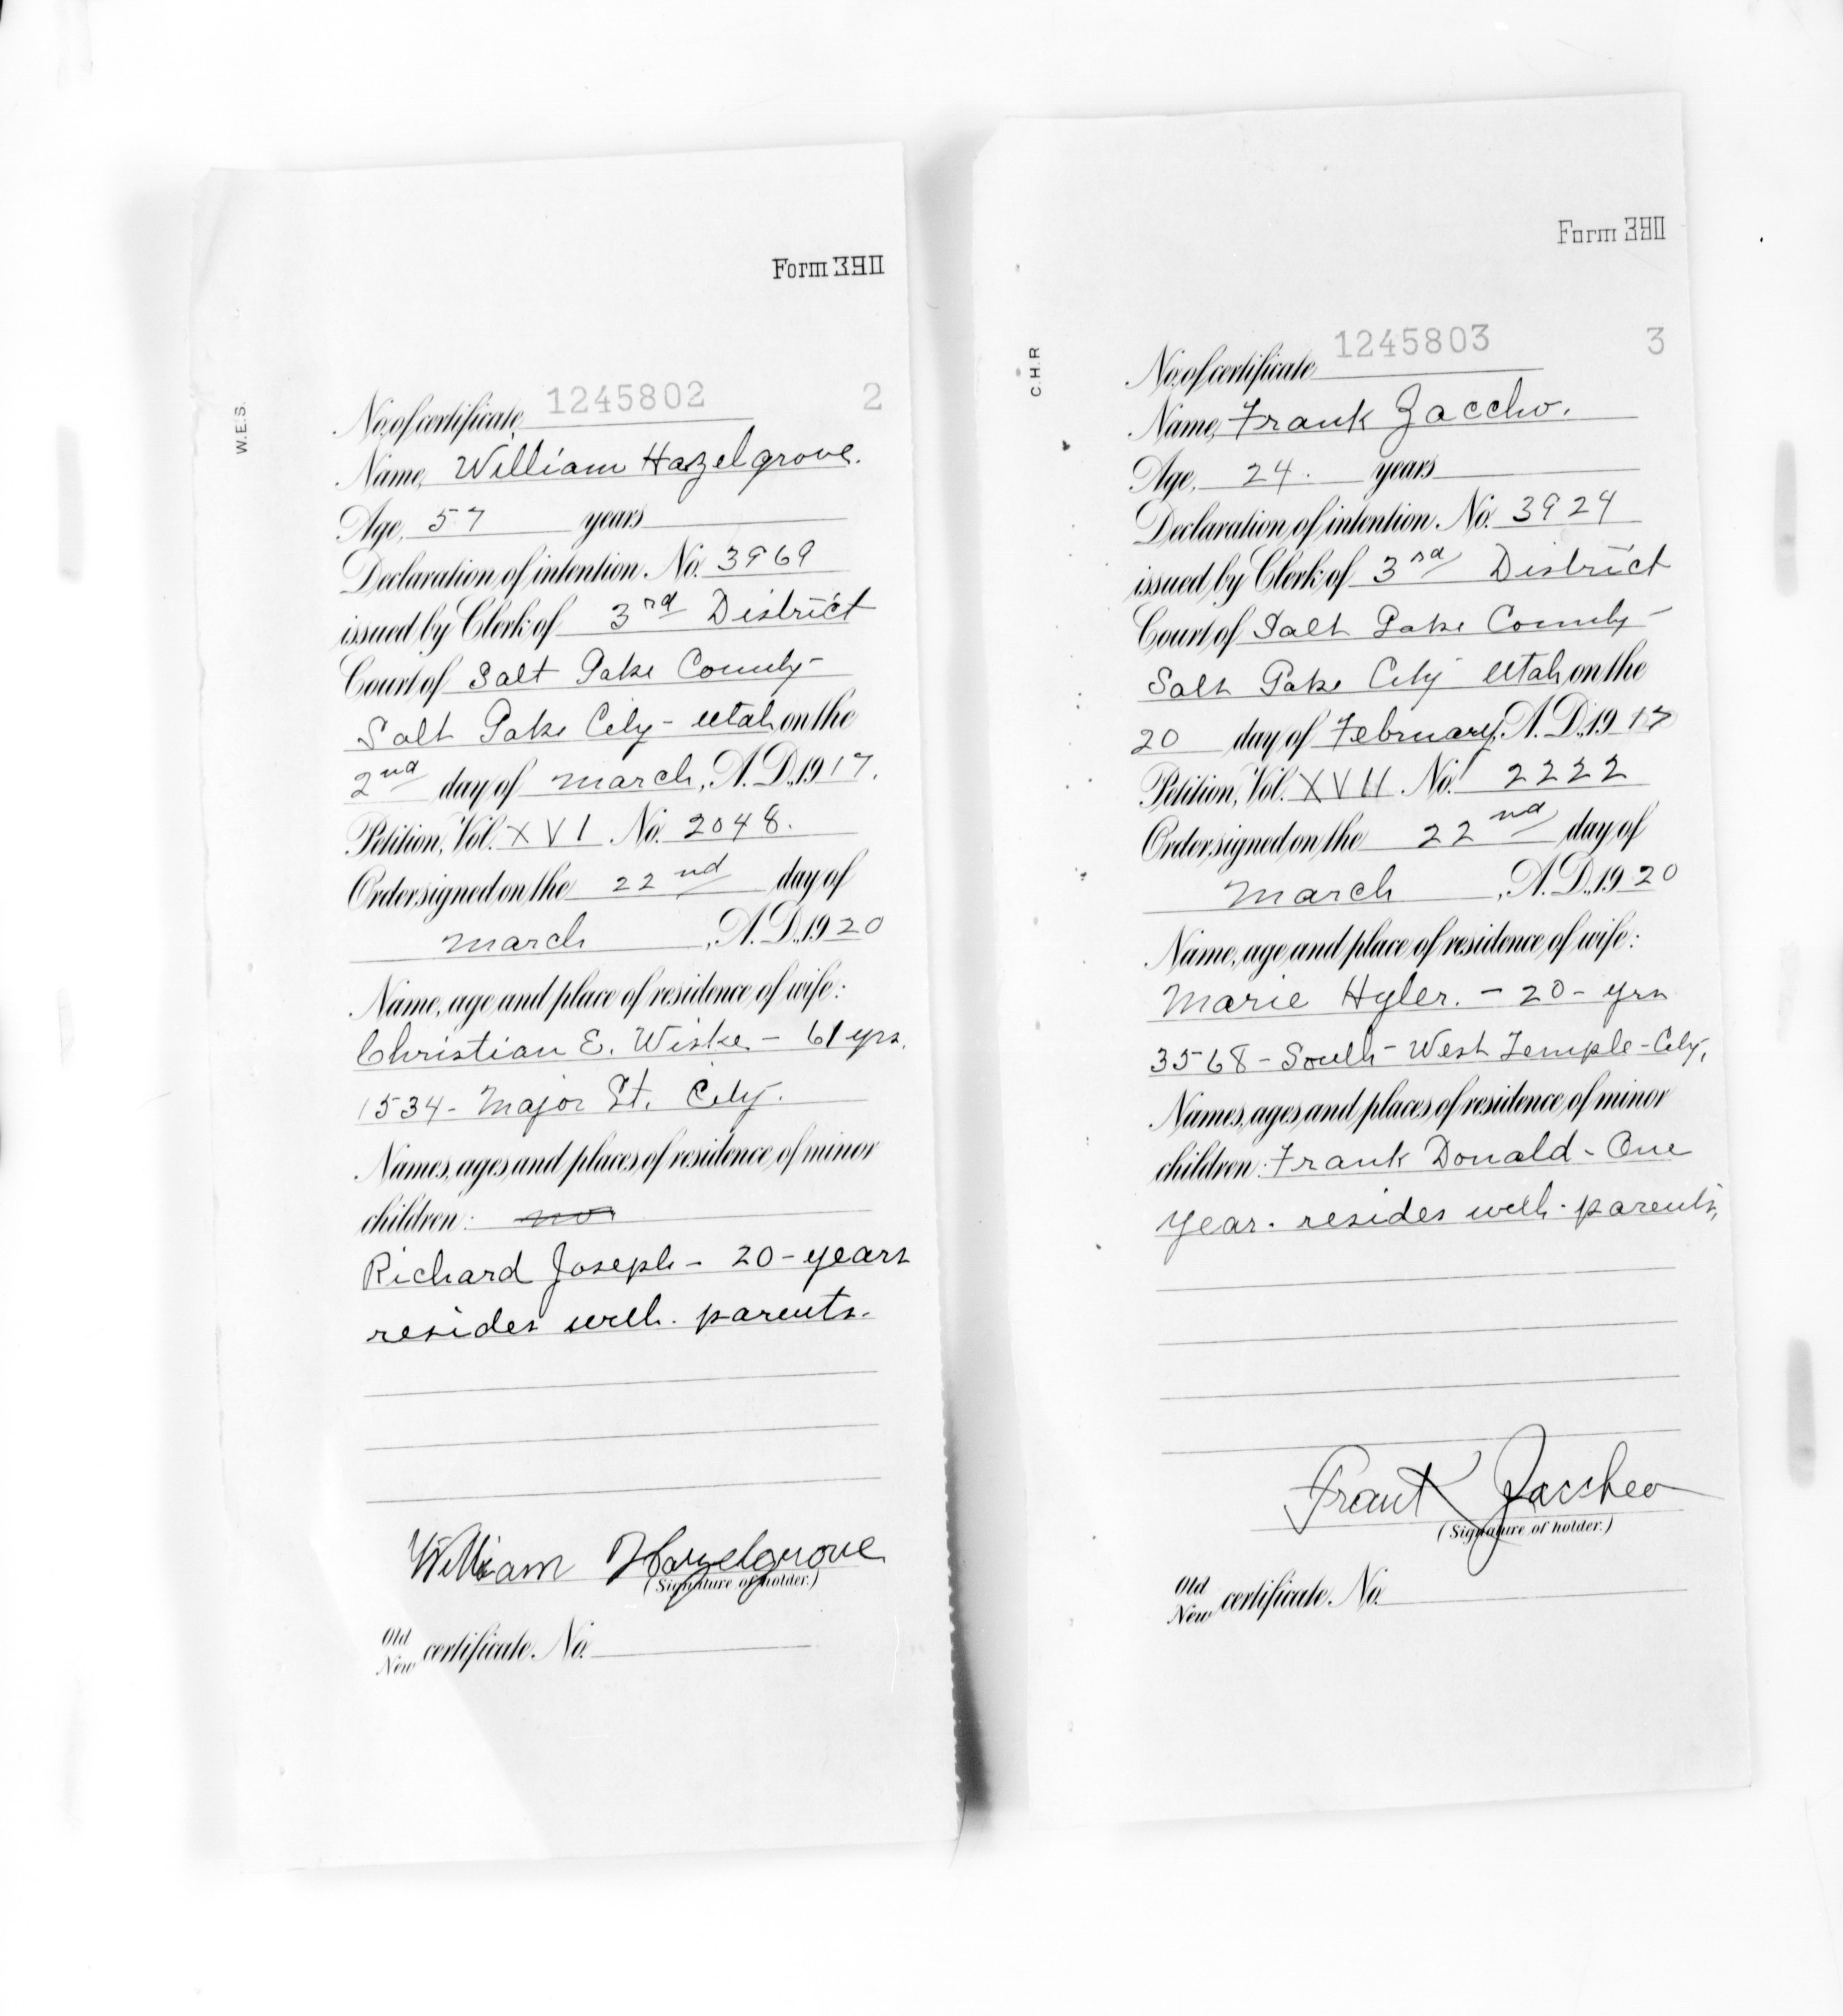 Form 390
W.E.S.
No. of certificate, 1245802 2
Name, William Hazelgrove.
Age, 57 years
Declaration of intention No. 3969
issued by Clerk of 3rd District
Court of Salt Lake County-
Salt Lake City - Utah on the
2nd day of March, A.D. 1917.
Petition, Vol. XVI No. 2048.
Order signed on the 22nd day of
March, A.D. 1920
Name, age and place of residence of wife:
Christian E. Wiske - 61 yrs.
1534 - Major St. City.
Names, ages and places of residence of minor
children: no
Richard Joseph - 20-years
resides with. parents.
William Hazelgrove
(Signature of holder.)
Old
New certificate No.
Form 390
C.H.R
No. of certificate 1245803 3
Name, Frank Zaccheo.
Age, 24. years
Declaration of intention No. 3924
issued by Clerk of 3rd District
Court of Salt Lake County-
Salt Lake City Utah on the
20 day of February, A.D. 1917
Petition, Vol. XVII No. 2222
Order signed on the 22nd day of
March, A.D. 1920
Name, age and place of residence of wife:
Marie Hyler. - 20 - yrs
3568 - South - West Temple - City,
Names, ages and places of residence of minor
children: Frank Donald - One
year. resides with. parents,
Frank Zaccheo
(Signature of holder.)
Old
New certificate No.